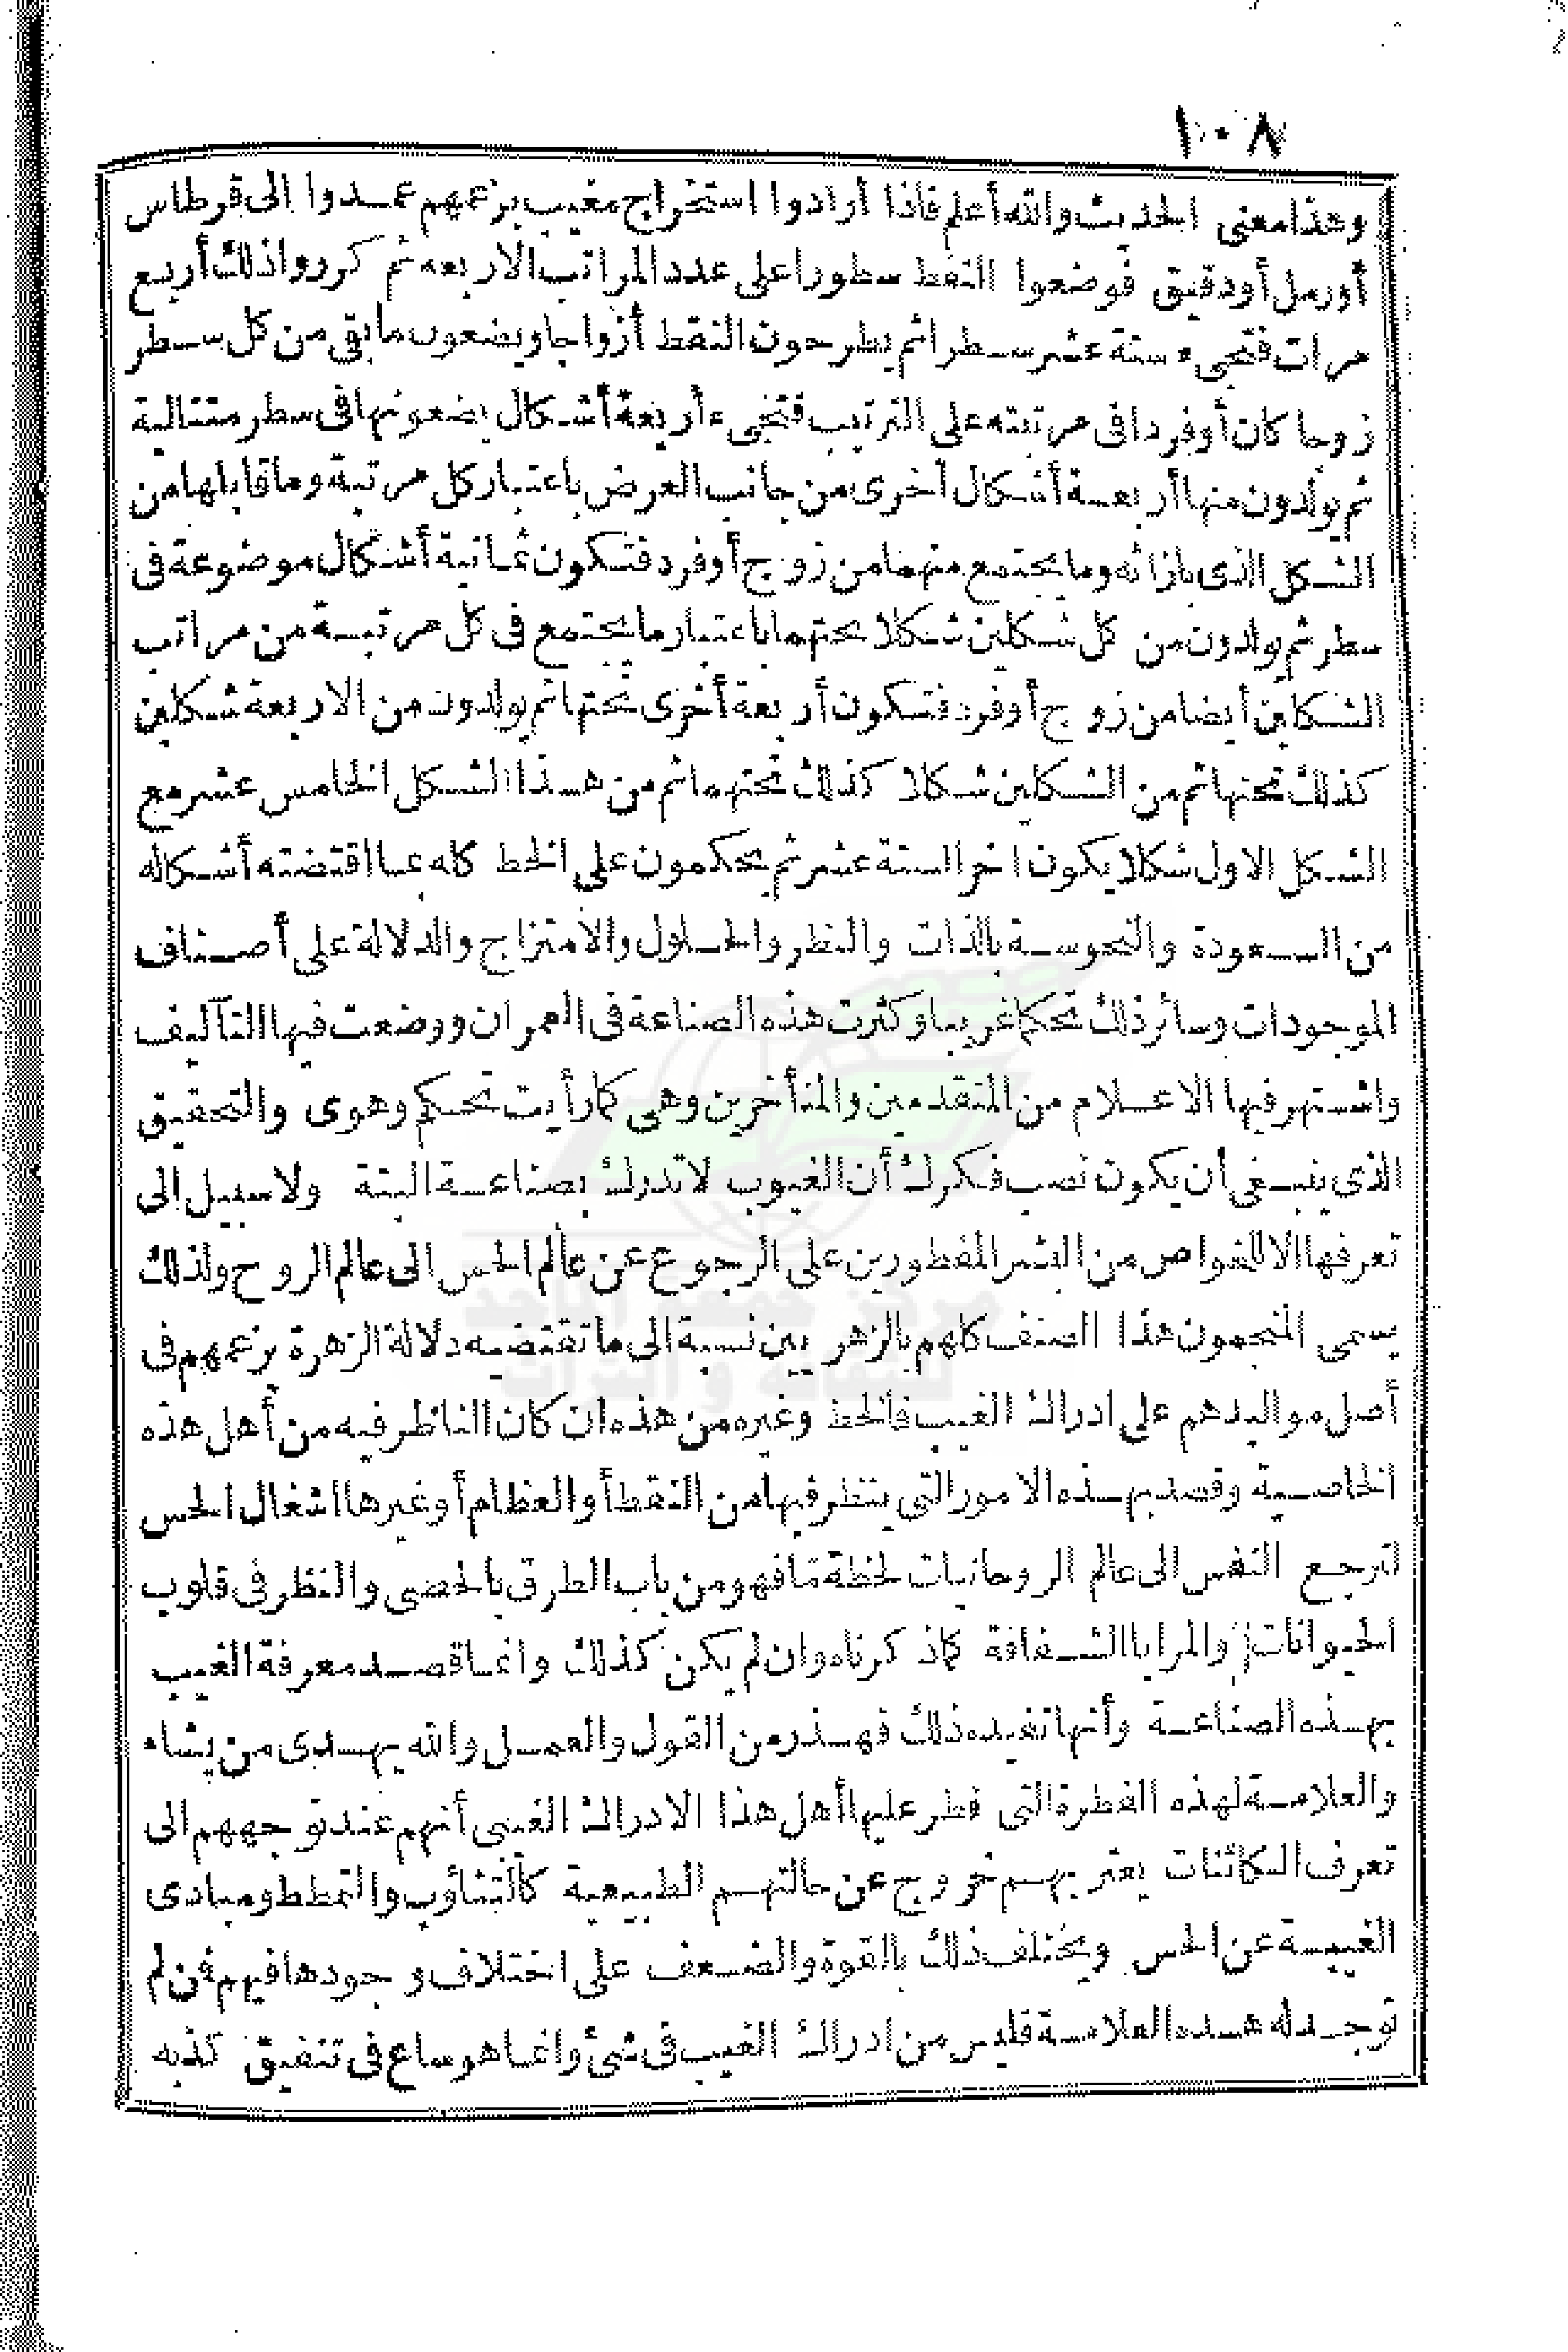 ١٠٨
وهذا معنى الحديث والله أعلم فاذا أرادوا استخراج مغيب بزعمهم عمدوا الى قرطاس
أو رمل أو دقيق فوضعوا النقط سطورا على عدد المراتب الاربعة ثم كرروا ذلك أربع
مرات فتجىء ستة عشر سطرا ثم يطرحون النقط أزواجا ويضعون ما بقى من كل سطر
زوجا كان أو فردا فى مرتبته على الترتيب فتجىء أربعة أشكال يضعونها فى سطر متتالية
ثم يولدون منها أربعة أشكال أخرى من جانب العرض باعتبار كل مرتبة وما قابلها من
الشكل الذى بازائه وما يجتمع منهما من زوج أو فرد فتكون ثمانية أشكال موضوعة فى
سطر ثم يولدون من كل شكلين شكلا تحتهما باعتبار ما يجتمع فى كل مرتبة من مراتب
الشكلين أيضا من زوج أو فرد فتكون أربعة أخرى تحتها ثم يولدون من الاربعة شكلين
كذلك تحتها ثم من الشكلين شكلا كذلك تحتهما ثم من هذا الشكل الخامس عشر مع
الشكل الاول شكلا يكون اخر الستة عشر ثم يحكمون على الخط كله بما اقتضته أشكاله
من السعودة والنحوسة بالذات والنظر والحلول والامتزاج والدلالة على أصناف
الموجودات وسائر ذلك تحكما غريبا وكثرت هذه الصناعة فى العمران ووضعت فيها التآليف
واشتهر فيها الاعلام من المتقدمين والمتأخرين وهى كما رأيت تحكم وهوى والتحقيق
الذى ينبغى أن يكون نصب فكرك أن الغيوب لا تدرك بصناعة البتة ولا سبيل الى
تعرفها الا للخواص من البشر المفطورين على الرجوع عن عالم الحس الى عالم الروح ولذلك
يسمى المنجمون هذا الصنف كلهم بالزهريين نسبة الى ما تقتضيه دلالة الزهرة بزعمهم فى
أصل مواليدهم على ادراك الغيب فالخط وغيره من هذه ان كان الناظر فيه من أهل هذه
الخاصية وقصد بهذه الامور التى ينظر فيها من النقط أو العظام أو غيرها اشغال الحس
لترجع النفس الى عالم الروحانيات لحظة ما فهو من باب الطرق بالحصى والنظر فى قلوب
الحيوانات والمرايا الشفافة كما ذكرناه وان لم يكن كذلك وانما قصد معرفة الغيب
بهذه الصناعة وأنها تفيده ذلك فهذر من القول والعمل والله يهدى من يشاء
والعلامة لهذه الفطرة التى فطر عليها أهل هذا الادراك الغيبى أنهم عند توجههم الى
تعرف الكائنات يعتريهم خروج عن حالتهم الطبيعية كالتثاؤب والتمطط ومبادى
الغيبة عن الحس ويختلف ذلك بالقوة والضعف على اختلاف وجودها فيهم فمن لم
توجد له هذه العلامة فليس من ادراك الغيب فى شئ وانما هو ساع فى تنفيق كذبه
مركز جمعة الماجد
للثقافة و التراث